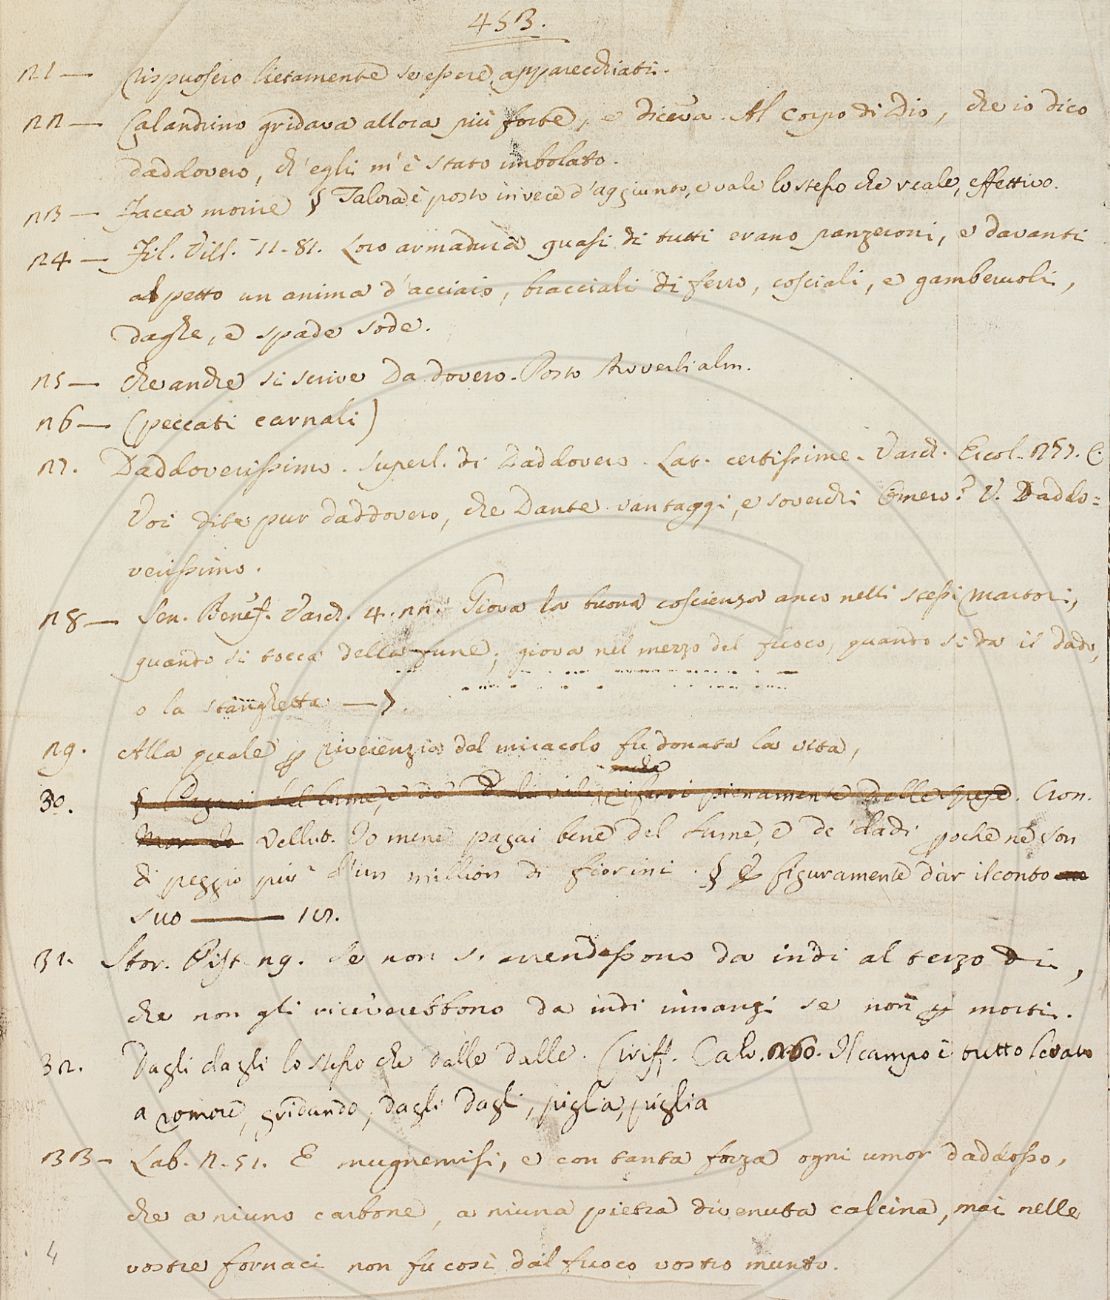 453.
21 — Rispuosero lietamente se essere apparecchiati.
22 — Calandrino gridava allora più forte, e diceva. Al corpo di Dio, che io dico
daddovero, ch'egli m'è stato imbolato.
23 — Facea morire § Talora è posto in vece d'aggiunto, e vale lo stesso che reale, effettivo.
24 — Fil. Vill. 11. 81. Loro armadura quasi di tutti erano panzeroni, e davanti
al petto un anima d'acciaio, bracciali di ferro, cosciali, e gamberuoli,
daghe, e spade sode.
25 — che anche si scrive Da dovero. Posto Avverbialm.
26 — (peccati carnali)
27. Daddoverissimo. Superl. di Daddovero. Lat. certissime. Varch. Ercol. 257. C.
Voi dite pur daddovero, che Dante vantaggi, e soverchi Omero? V. Daddo=
verissimo.
28 — Sen. Benef. Varch. 4. 22. Giova la buona coscienza anco nelli stessi martori,
quando si tocca della fune, giova nel mezzo del fuoco, quando si da il dado,
o la stanghetta —
29. Alla quale p riverenzia del miracolo fu donata la vita,
30. § Pagarsi del lume, e de' Dadi vale rifarsi pienamente delle spese. Cron.
Vellut. Io mene pagai bene del lume, e de' dadi poche ne son
di peggio più d'un million di fiorini. § E figuramente dar il conto
suo ——— 12.
31. Stor. Pist. 29. Se non si arrendessono da indi al terzo di,
che non gli riceverebbono da indi innanzi se non p morti.
32. Dagli dagli lo stesso che dalle dalle. Ciriff. Calv. 260. Il campo è tutto levato
a romore, gridando, dagli dagli, piglia, piglia
33 — Lab. 2. 51. E mugnemisi, e con tanta forza ogni umor daddosso,
che a niuno carbone, a niuna pietra divenuta calcina, mai nelle
vostre fornaci non fu così dal fuoco vostro munto.
4